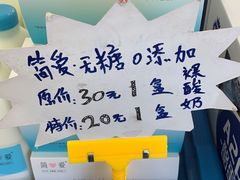 简爱·无糖0添加
裸酸奶
原价:30元1盒
特价:20元1盒
简爱